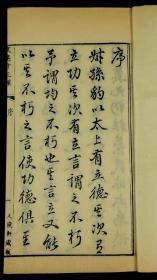 序
叔孫豹以太上有立德其次有
立功其次有立言謂之不朽
予謂均之不朽立言又能
以其不朽之言使功德俱至
序